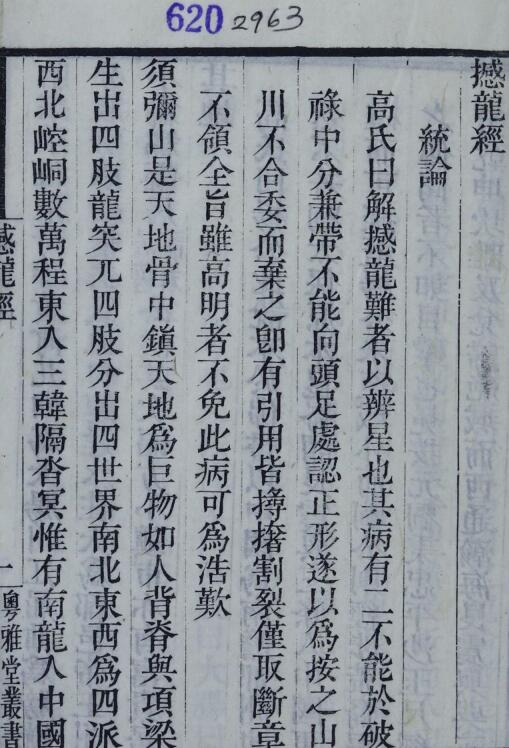 620 2963
撼龍經
統論
高氏曰解撼龍難者以辨星也其病有二不能於破
祿中分兼帶不能向頭足處認正形遂以爲按之山
川不合委而棄之卽有引用皆撏撦割裂僅取斷章
不領全旨雖高明者不免此病可爲浩歎
須彌山是天地骨中鎮天地爲巨物如人背脊與項梁
生出四肢龍突兀四肢分出四世界南北東西爲四派
西北崆峒數萬程東入三韓隔杳冥惟有南龍入中國
撼龍經
一
粵雅堂叢書